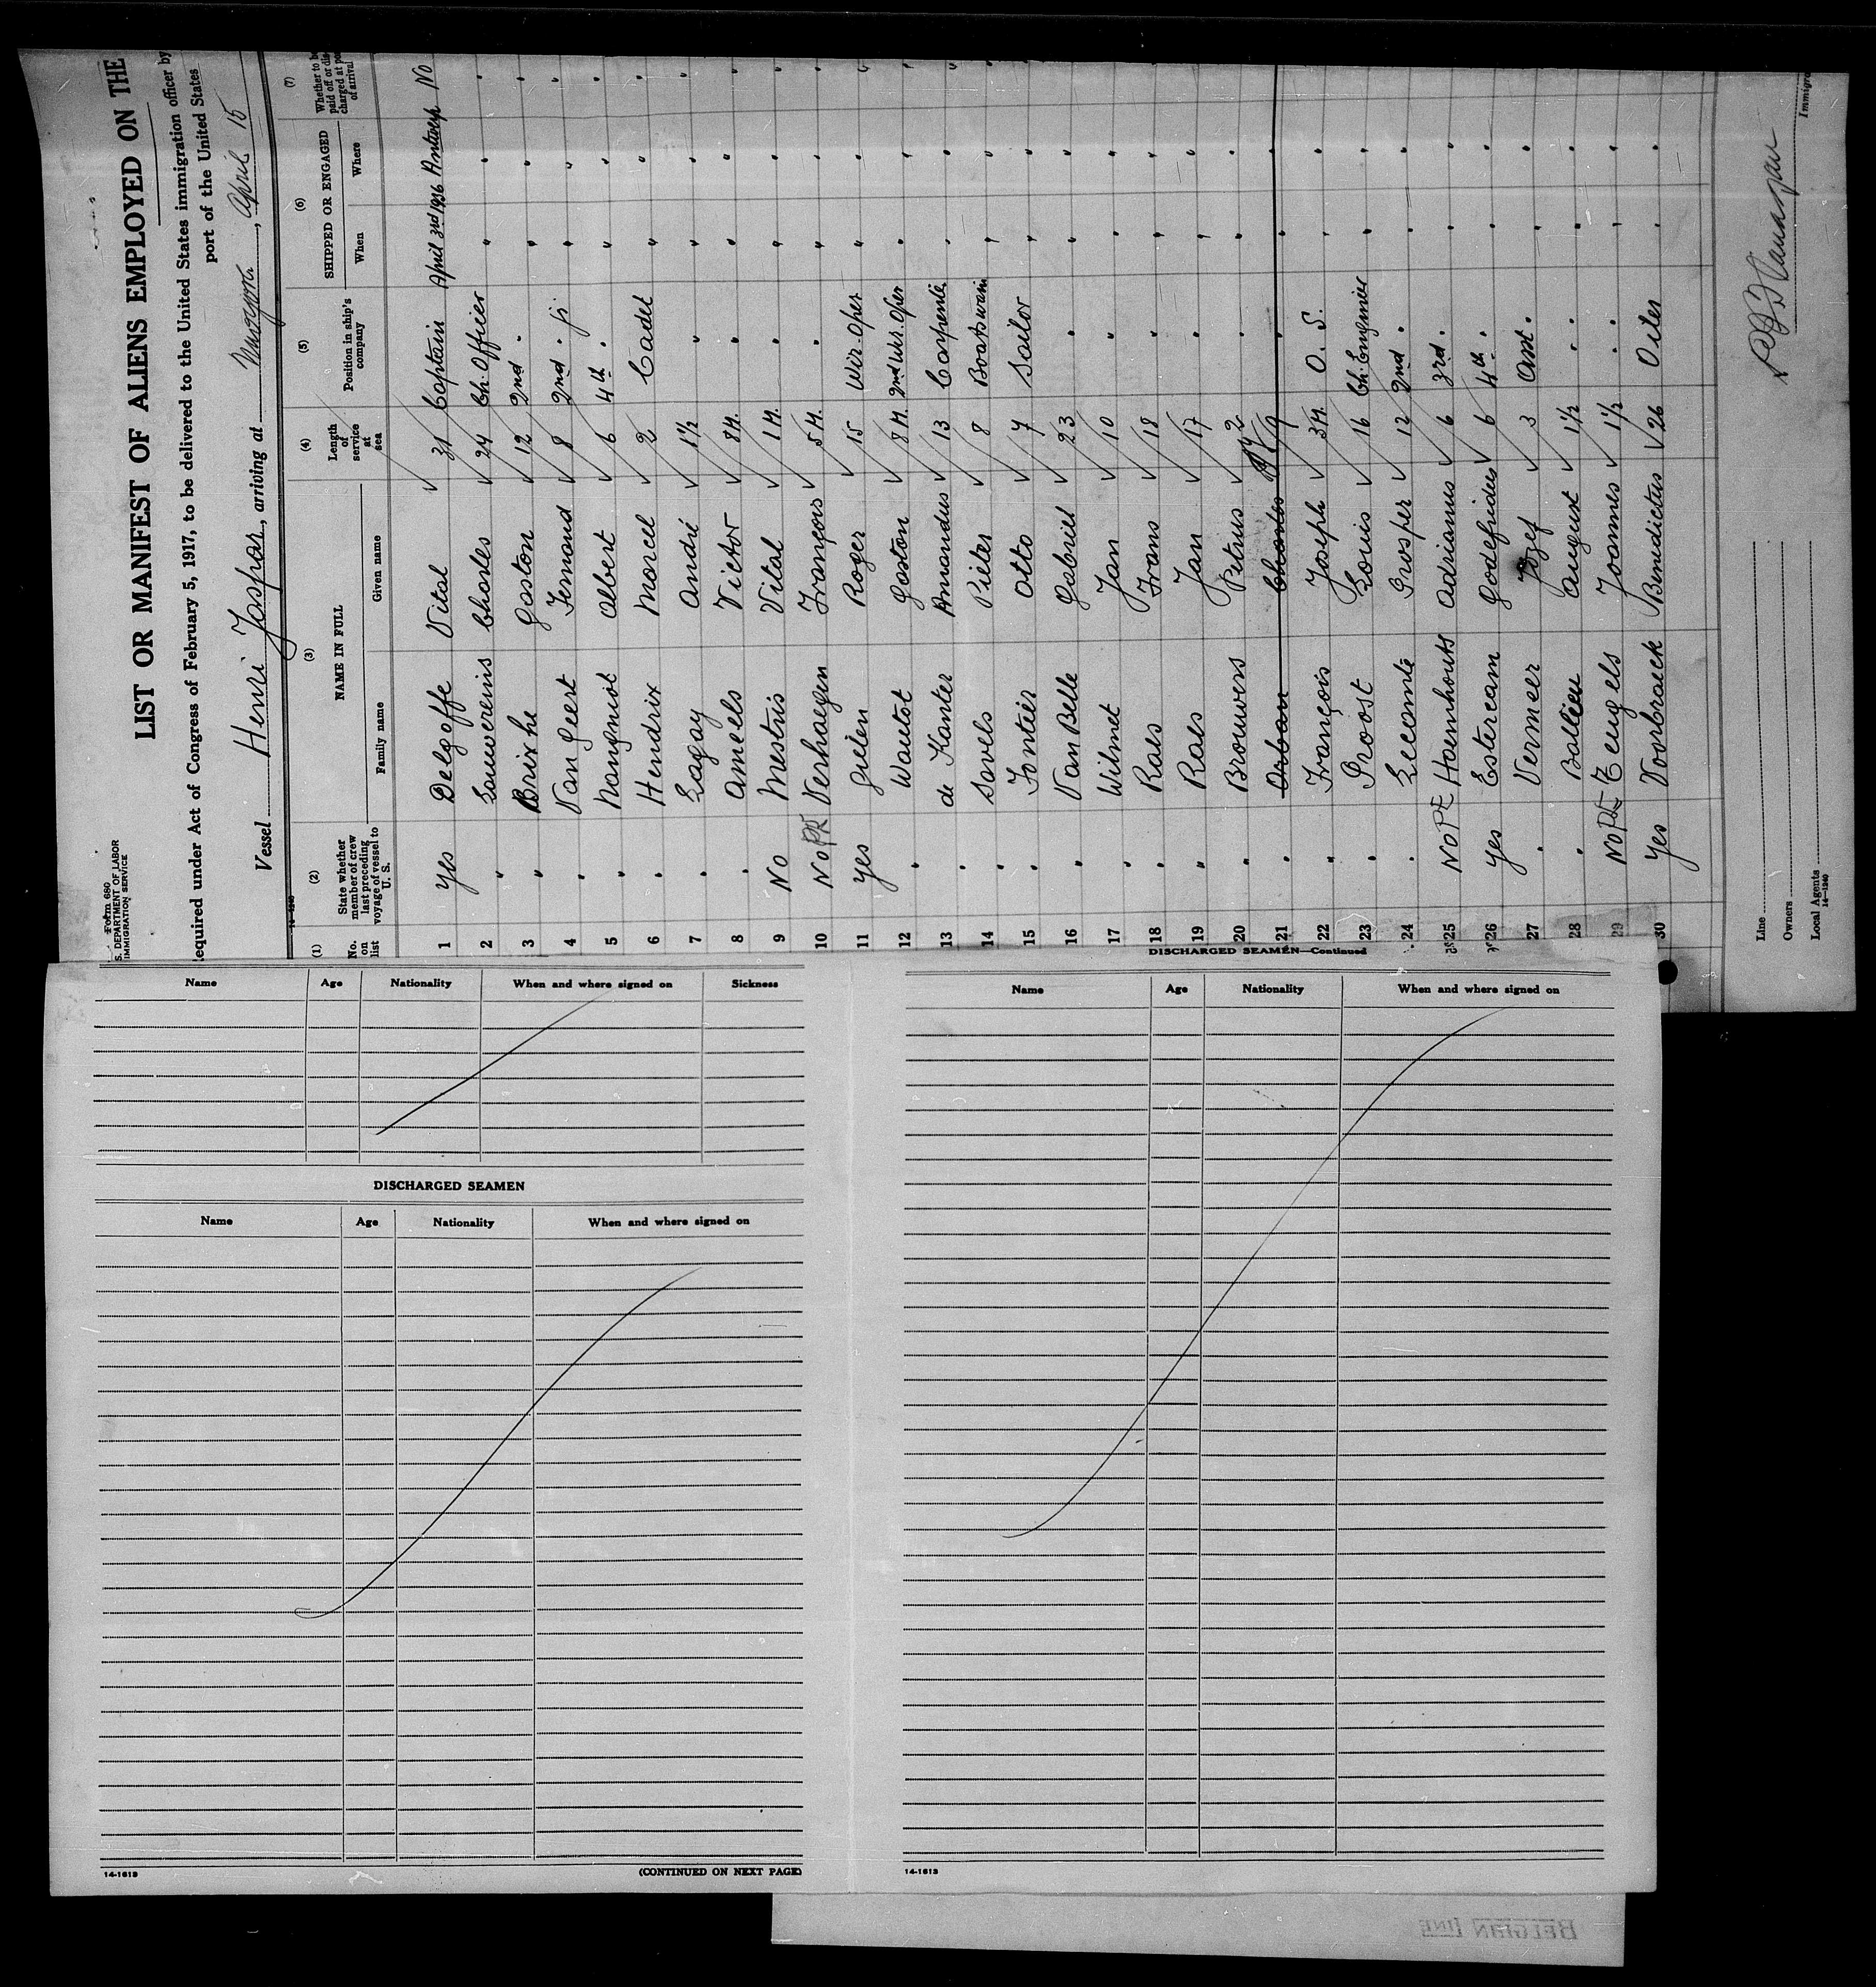 Form 680
S. DEPARTMENT OF LABOR
IMMIGRATION SERVICE
LIST OR MANIFEST OF ALIENS EMPLOYED ON THE
equired under Act of Congress of February 5, 1917, to be delivered to the United States immigration officer by
port of the United States
Vessel Henri Jaspar, arriving at , April 15
(1) (2) (3) (4) (5) (6) (7)
No. on list
State whether member of crew last preceding voyage of vessel to U. S.
NAME IN FULL
Family name Given name
Length of service at sea
Position in ship's company
SHIPPED OR ENGAGED
When Where
Whether to be paid off or discharged at port of arrival
1 Yes Delgoffe Vital 31 Captain April 3rd 1936 Antwerp No
2 " Souvereins Charles 24 Ch. Officer " " "
3 " Brixhe Gaston 12 2nd " " " "
4 " Van Geert Fernand 8 2nd " jr " " "
5 " Mangniot Albert 6 4th " " " "
6 " Hendrix Marcel 2 Cadet " " "
7 " Lagay André 1½ " " " "
8 " Ameels Victor 8M. " " " "
9 No Mestris Vital 1M. " " " "
10 No PE Verhaegen François 5M. " " " "
11 Yes Gielen Roger 15 Wir. Oper " " "
12 " Wautot Gaston 8M. 2nd Wir. Oper " " "
13 " de Kanter Amandus 13 Carpente " " "
14 " Savels Pieter 8 Boatswain " " "
15 " Fontier Otto 7 Sailor " " "
16 " Van Belle Gabriel 23 " " " "
17 " Wilmet Jan 10 " " " "
18 " Rals Frans 18 " " " "
19 " Rals Jan 17 " " " "
20 " Brouwers Petrus 2 " " " "
21 " Orban Charles 9 " " " "
22 " François Joseph 3M. O. S. " " "
23 " Proost Louis 16 Ch. Engineer " " "
24 " Lecomte Prosper 12 2nd " " " "
25 No PE Haemhouts Adrianus 6 3rd " " " "
26 Yes Estercam Godefridus 6 4th " " " "
27 " Vermeer Jozef 3 Asst " " " "
28 " Balieu August 1½ " " " " "
29 No PE Eugels Joannes 1½ " " " " "
30 Yes Voorbraeck Benedictus 26 Oiler " " "
Line
Owners
Local Agents
14—1240
Immigra
Name Age Nationality When and where signed on Sickness
DISCHARGED SEAMEN
Name Age Nationality When and where signed on
14-1613 (CONTINUED ON NEXT PAGE)
DISCHARGED SEAMEN—Continued
Name Age Nationality When and where signed on
14-1613
BELGIAN LINE